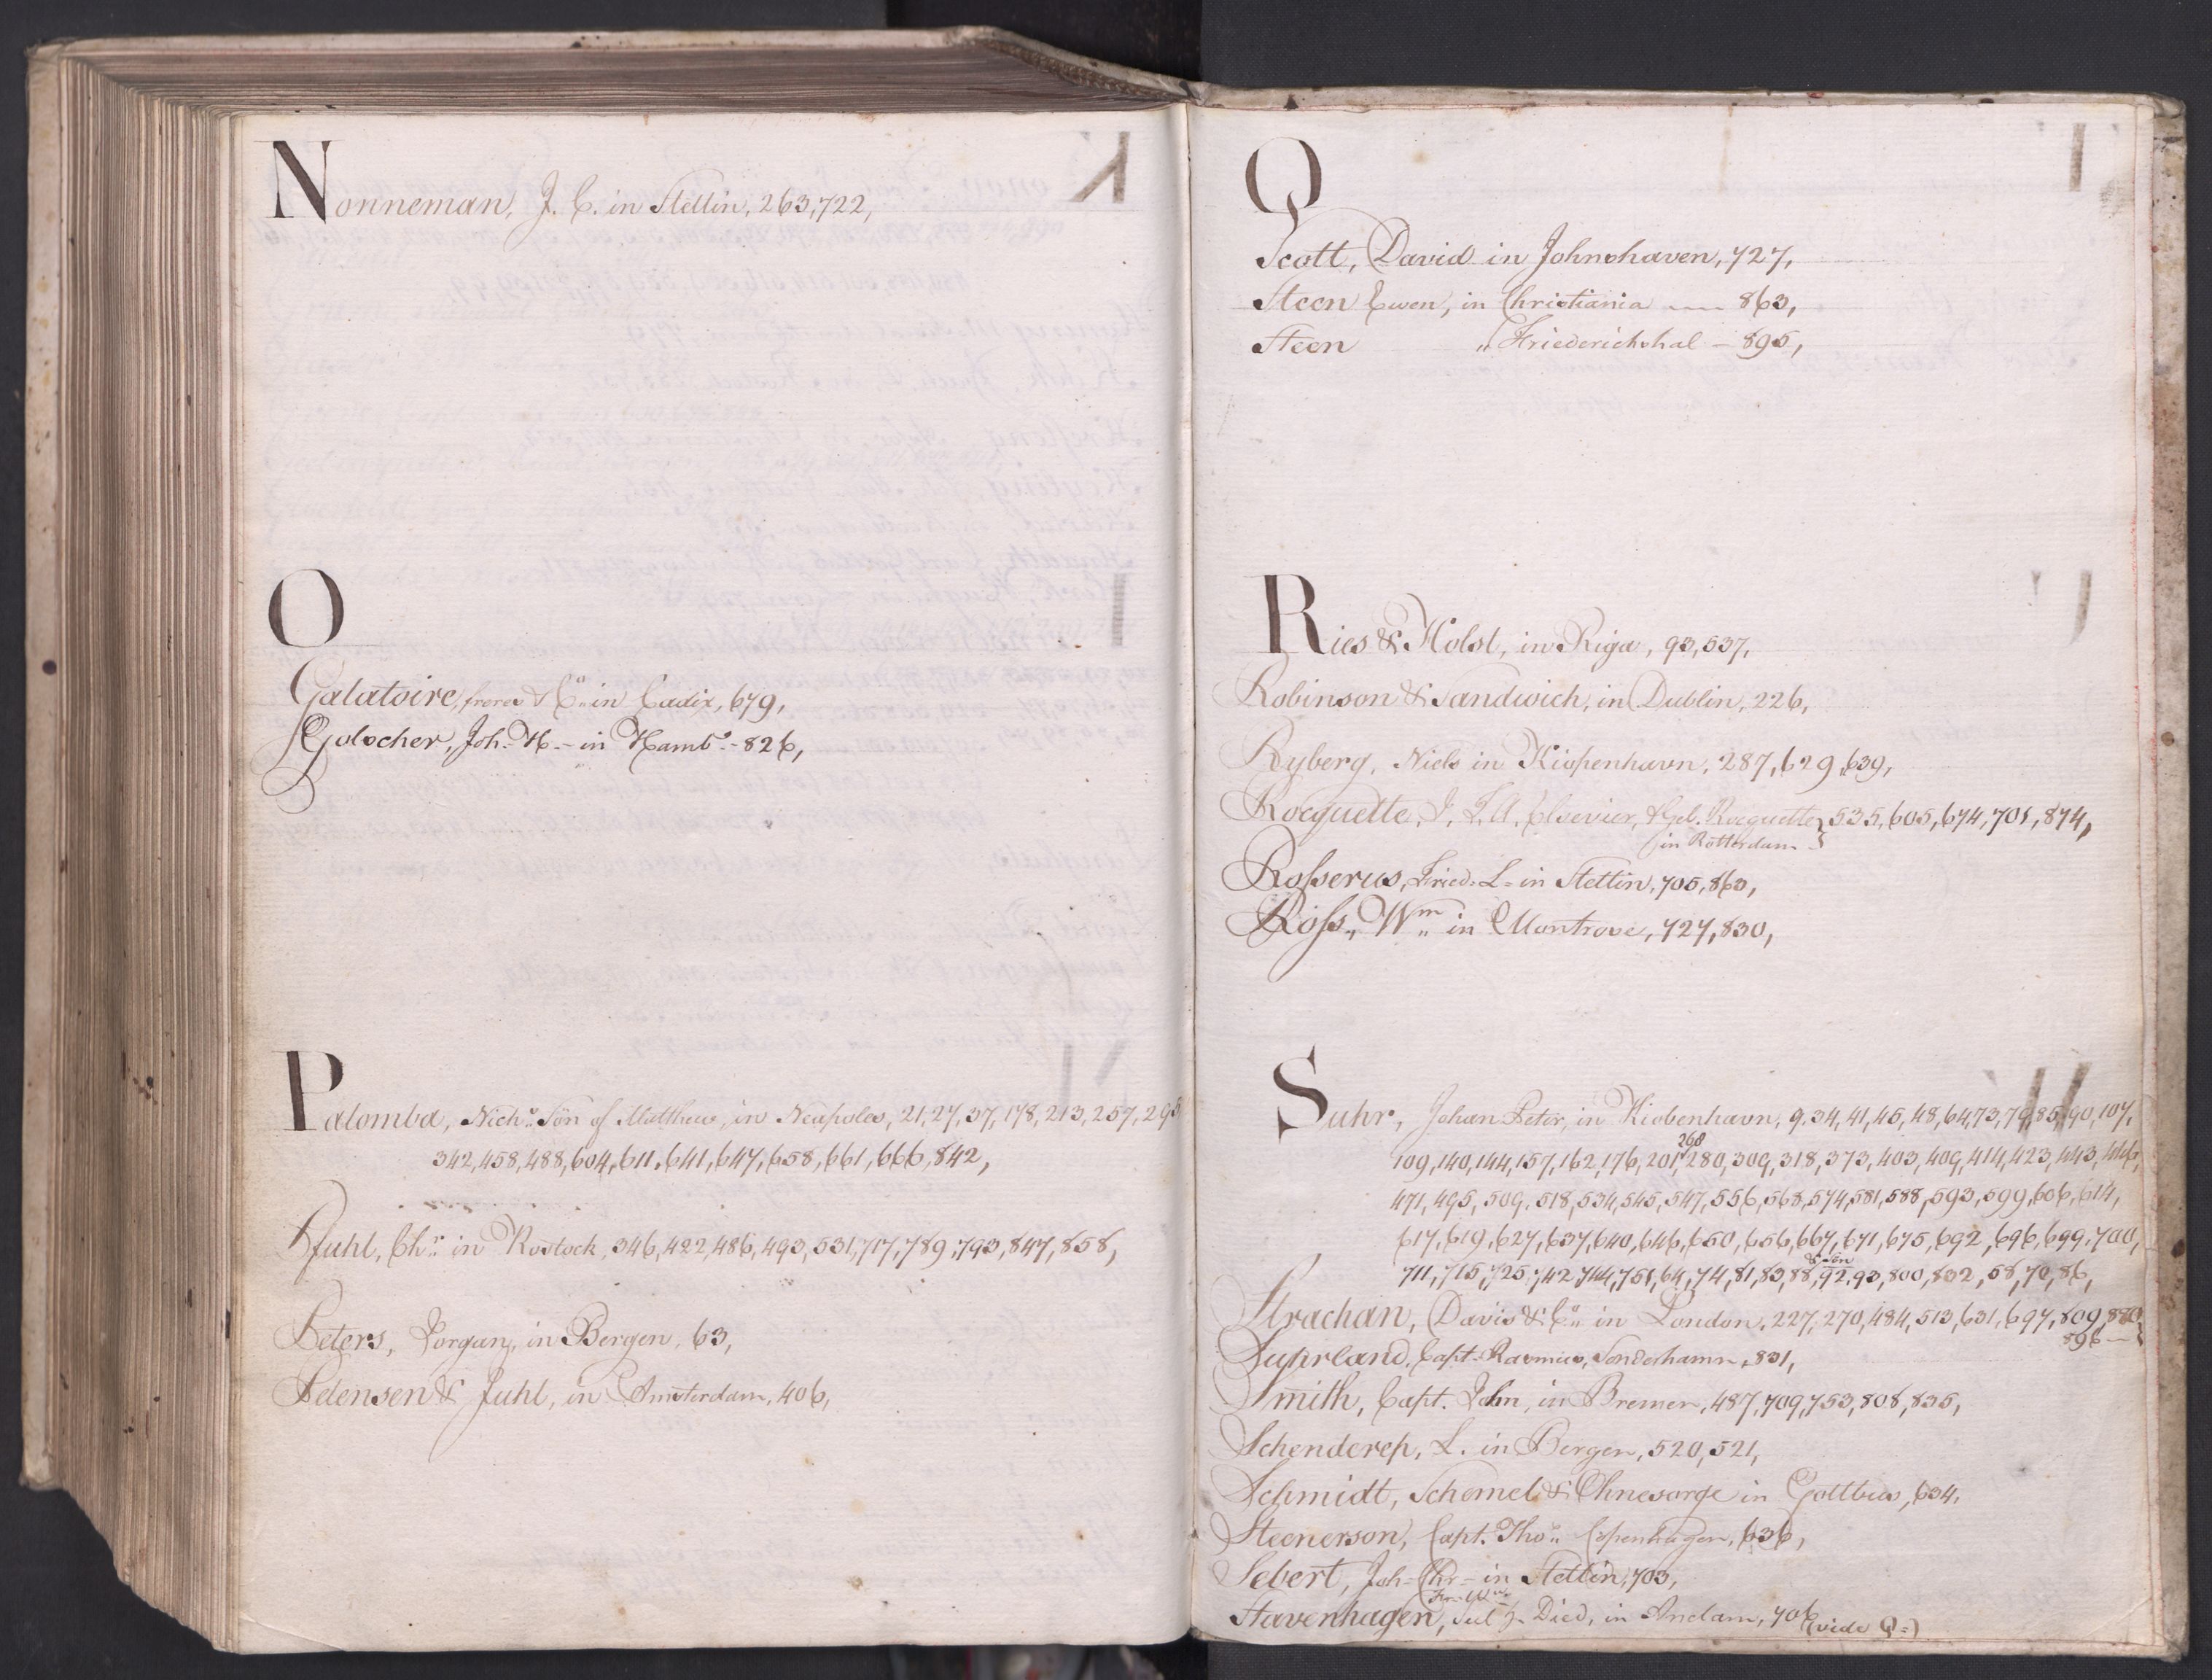 Nonneman, J. C. in Stettin, 263, 722,
O
Galatoire, freres & Co. in Cadix, 679,
Golocher, Joh. H. in Hambo. 826,
Palomba, Nichs. Son of Matthew, in Neapoles, 21, 27, 37, 178, 213, 257, 295
342, 458, 488, 604, 611, 641, 647, 658, 661, 666, 842,
Pfuhl, Chr. in Rostock, 346, 422, 486, 493, 531, 717, 789, 793, 847, 858,
Peters, Jorgan, in Bergen, 63,
Petensen & Juhl, in Amsterdam, 406,
Q
Scott, David in Johnshaven, 727,
Steen Ewen, in Christiania 863,
Steen " Friederichshal - 895,
Ries & Holst, in Riga, 93, 537,
Robinson & Sandwich, in Dublin, 226,
Ryberg, Niels in Kiopenhavn, 287, 629, 639,
Rocquette, J. T. A. Elsevier, & Geb. Rocquette 535, 605, 674, 701, 874,
in Rotterdam
Rosserus, Fried. L. in Stettin, 705, 863,
Ross, Wm in Montrose, 727, 830,
Suhr, Johan Peter, in Kiobenhavn, 9, 34, 41, 45, 48, 64, 73, 79, 85, 90, 107,
268
109, 140, 144, 157, 162, 176, 201, 280, 309, 318, 373, 403, 409, 414, 423, 443, 446,
471, 495, 509, 518, 534, 545, 547, 556, 568, 574, 581, 588, 593, 599, 606, 614,
617, 619, 627, 637, 640, 646, 650, 656, 667, 671, 675, 692, 696, 699, 700,
& Son
711, 715, 725, 742, 744, 751, 64, 74, 81, 83, 88, 92, 93, 800, 832, 58, 70, 86,
Strachan, Davis & Co. in London, 227, 270, 484, 513, 631, 697, 809, 880
896
Suhrland, Capt. Rasmus, Sonderhamn, 831,
Smith, Capt. John, in Bremen, 487, 709, 753, 808, 835,
Schenderep, L. in Bergen, 520, 521,
Schmidt, Schemel & Ohnesorge in Gottbus, 634.
Steenerson, Capt. Tho. Copenhagen, 636,
Sebert, Joh. Chr. in Stettin, 703,
Stavenhagen, Died, in Anclam, 706 (vide Q)